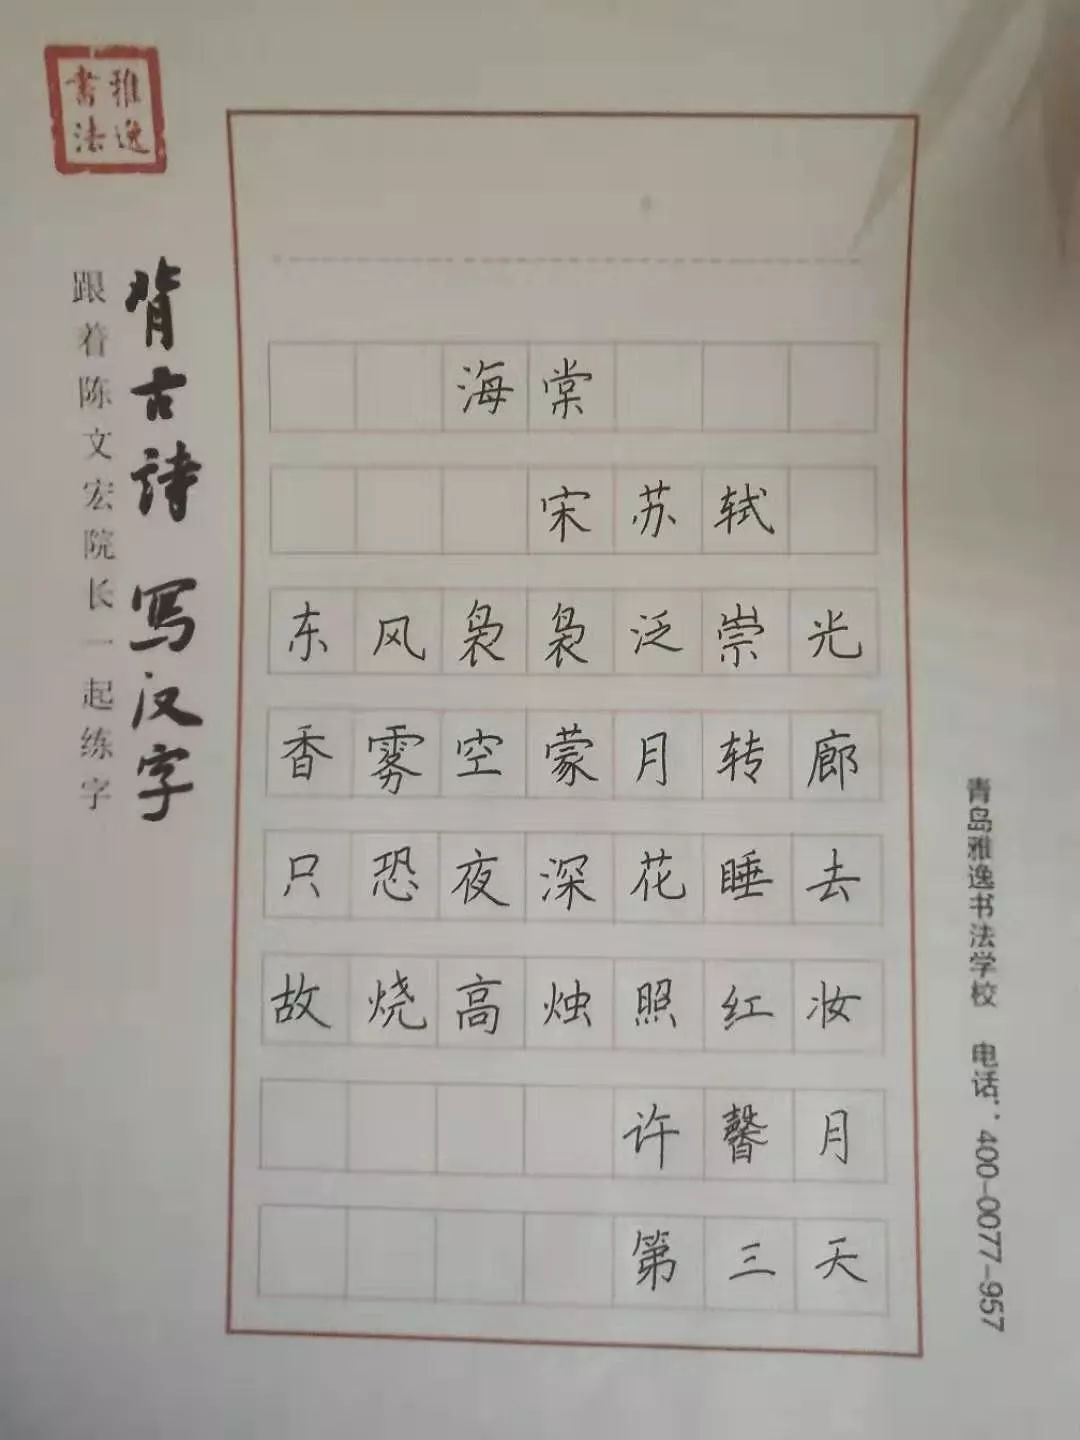 雅逸
书法
背古诗 写汉字
跟着陈文宏院长一起练字
海棠
宋苏轼
东风袅袅泛崇光
香雾空蒙月转廊
只恐夜深花睡去
故烧高烛照红妆
许馨月
第三天
青岛雅逸书法学校 电话：400-0077-957